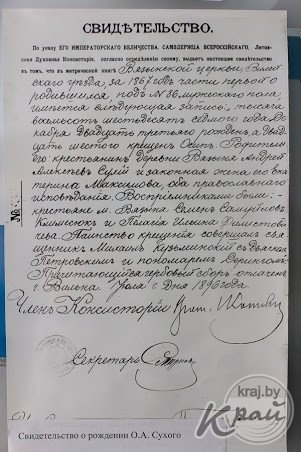 СВИДѢТЕЛЬСТВО.
По указу ЕГО ИМПЕРАТОРСКАГО ВЕЛИЧЕСТВА, САМОДЕРЖЦА ВСЕРОССІЙСКАГО, Литов-
ская Духовная Консисторія, согласно опредѣленію своему, выдаетъ настоящее свидѣтельство
въ томъ, что въ метрической книгѣ Вязынской церкви, Вилей-
скаго уѣзда, за 1867 годъ части первой о
родившихся подъ № 36 мужескаго пола
имѣется слѣдующая запись: тысяча
восемьсотъ шестьдесятъ седьмого года, Де-
кабря двадцать третьяго рожденъ, а двад-
цать шестого крещенъ Осипъ. Родители
его: крестьянинъ деревни Вязыня Андрей
Алексѣевъ Сухій и законная жена его Ека-
терина Максимова, оба православнаго
исповѣданія. Воспріемниками были:
крестьяне м. Вязыня Семенъ
и Пелагія
Таинство крещенія совершалъ свя-
щенникъ Михаилъ Кузьминскій съ дьячкомъ
Петровскимъ и пономаремъ
Причитающійся гербовый сборъ оплаченъ
г. Вильна Дня 1896 года.
Членъ Консисторіи
Секретарь
kraj.by
Край
Свидетельство о рождении О.А. Сухого